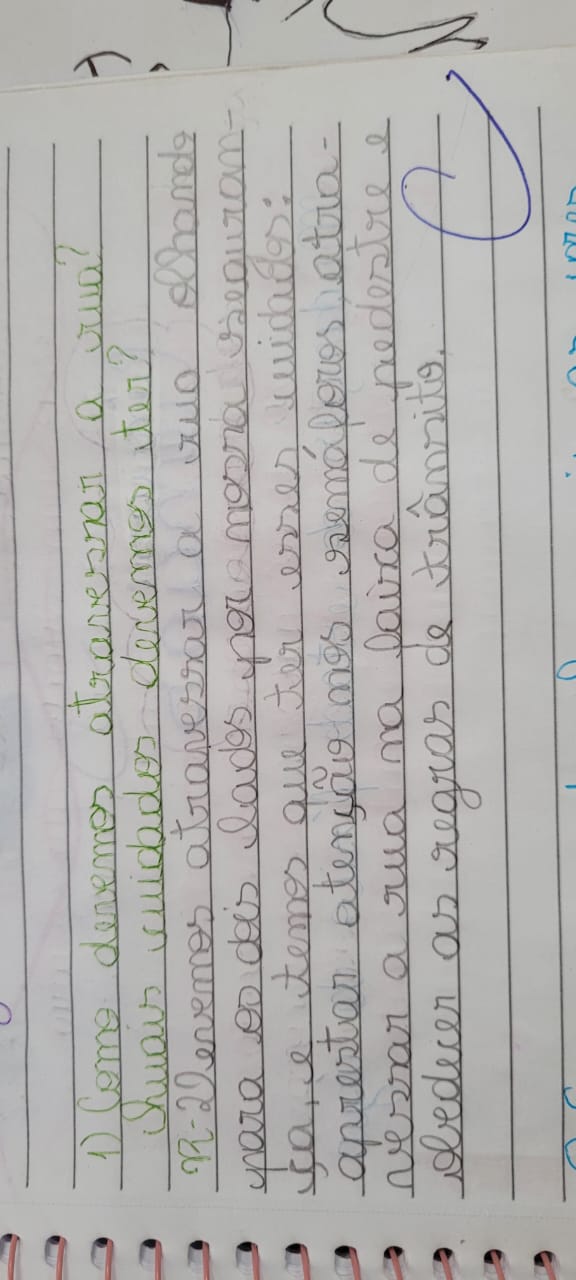 1) Como devemos atravessar a rua?
Quais cuidados devemos ter?
R-Devemos atravessar a rua olhando
para os dois lados por a nossa seguran-
ça, e temos que ter esses cuidados:
aprestar atenção nos semáforos atra-
vessar a rua na faixa de pedestre e
obedecer as regras de trânsito.